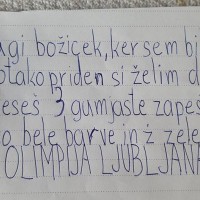 agi božiček, ker sem bi
otako priden si želim d
eseš 3 gumjaste zapes
o bele barve in ž zele
OLIMPIJA LJUBLJANA